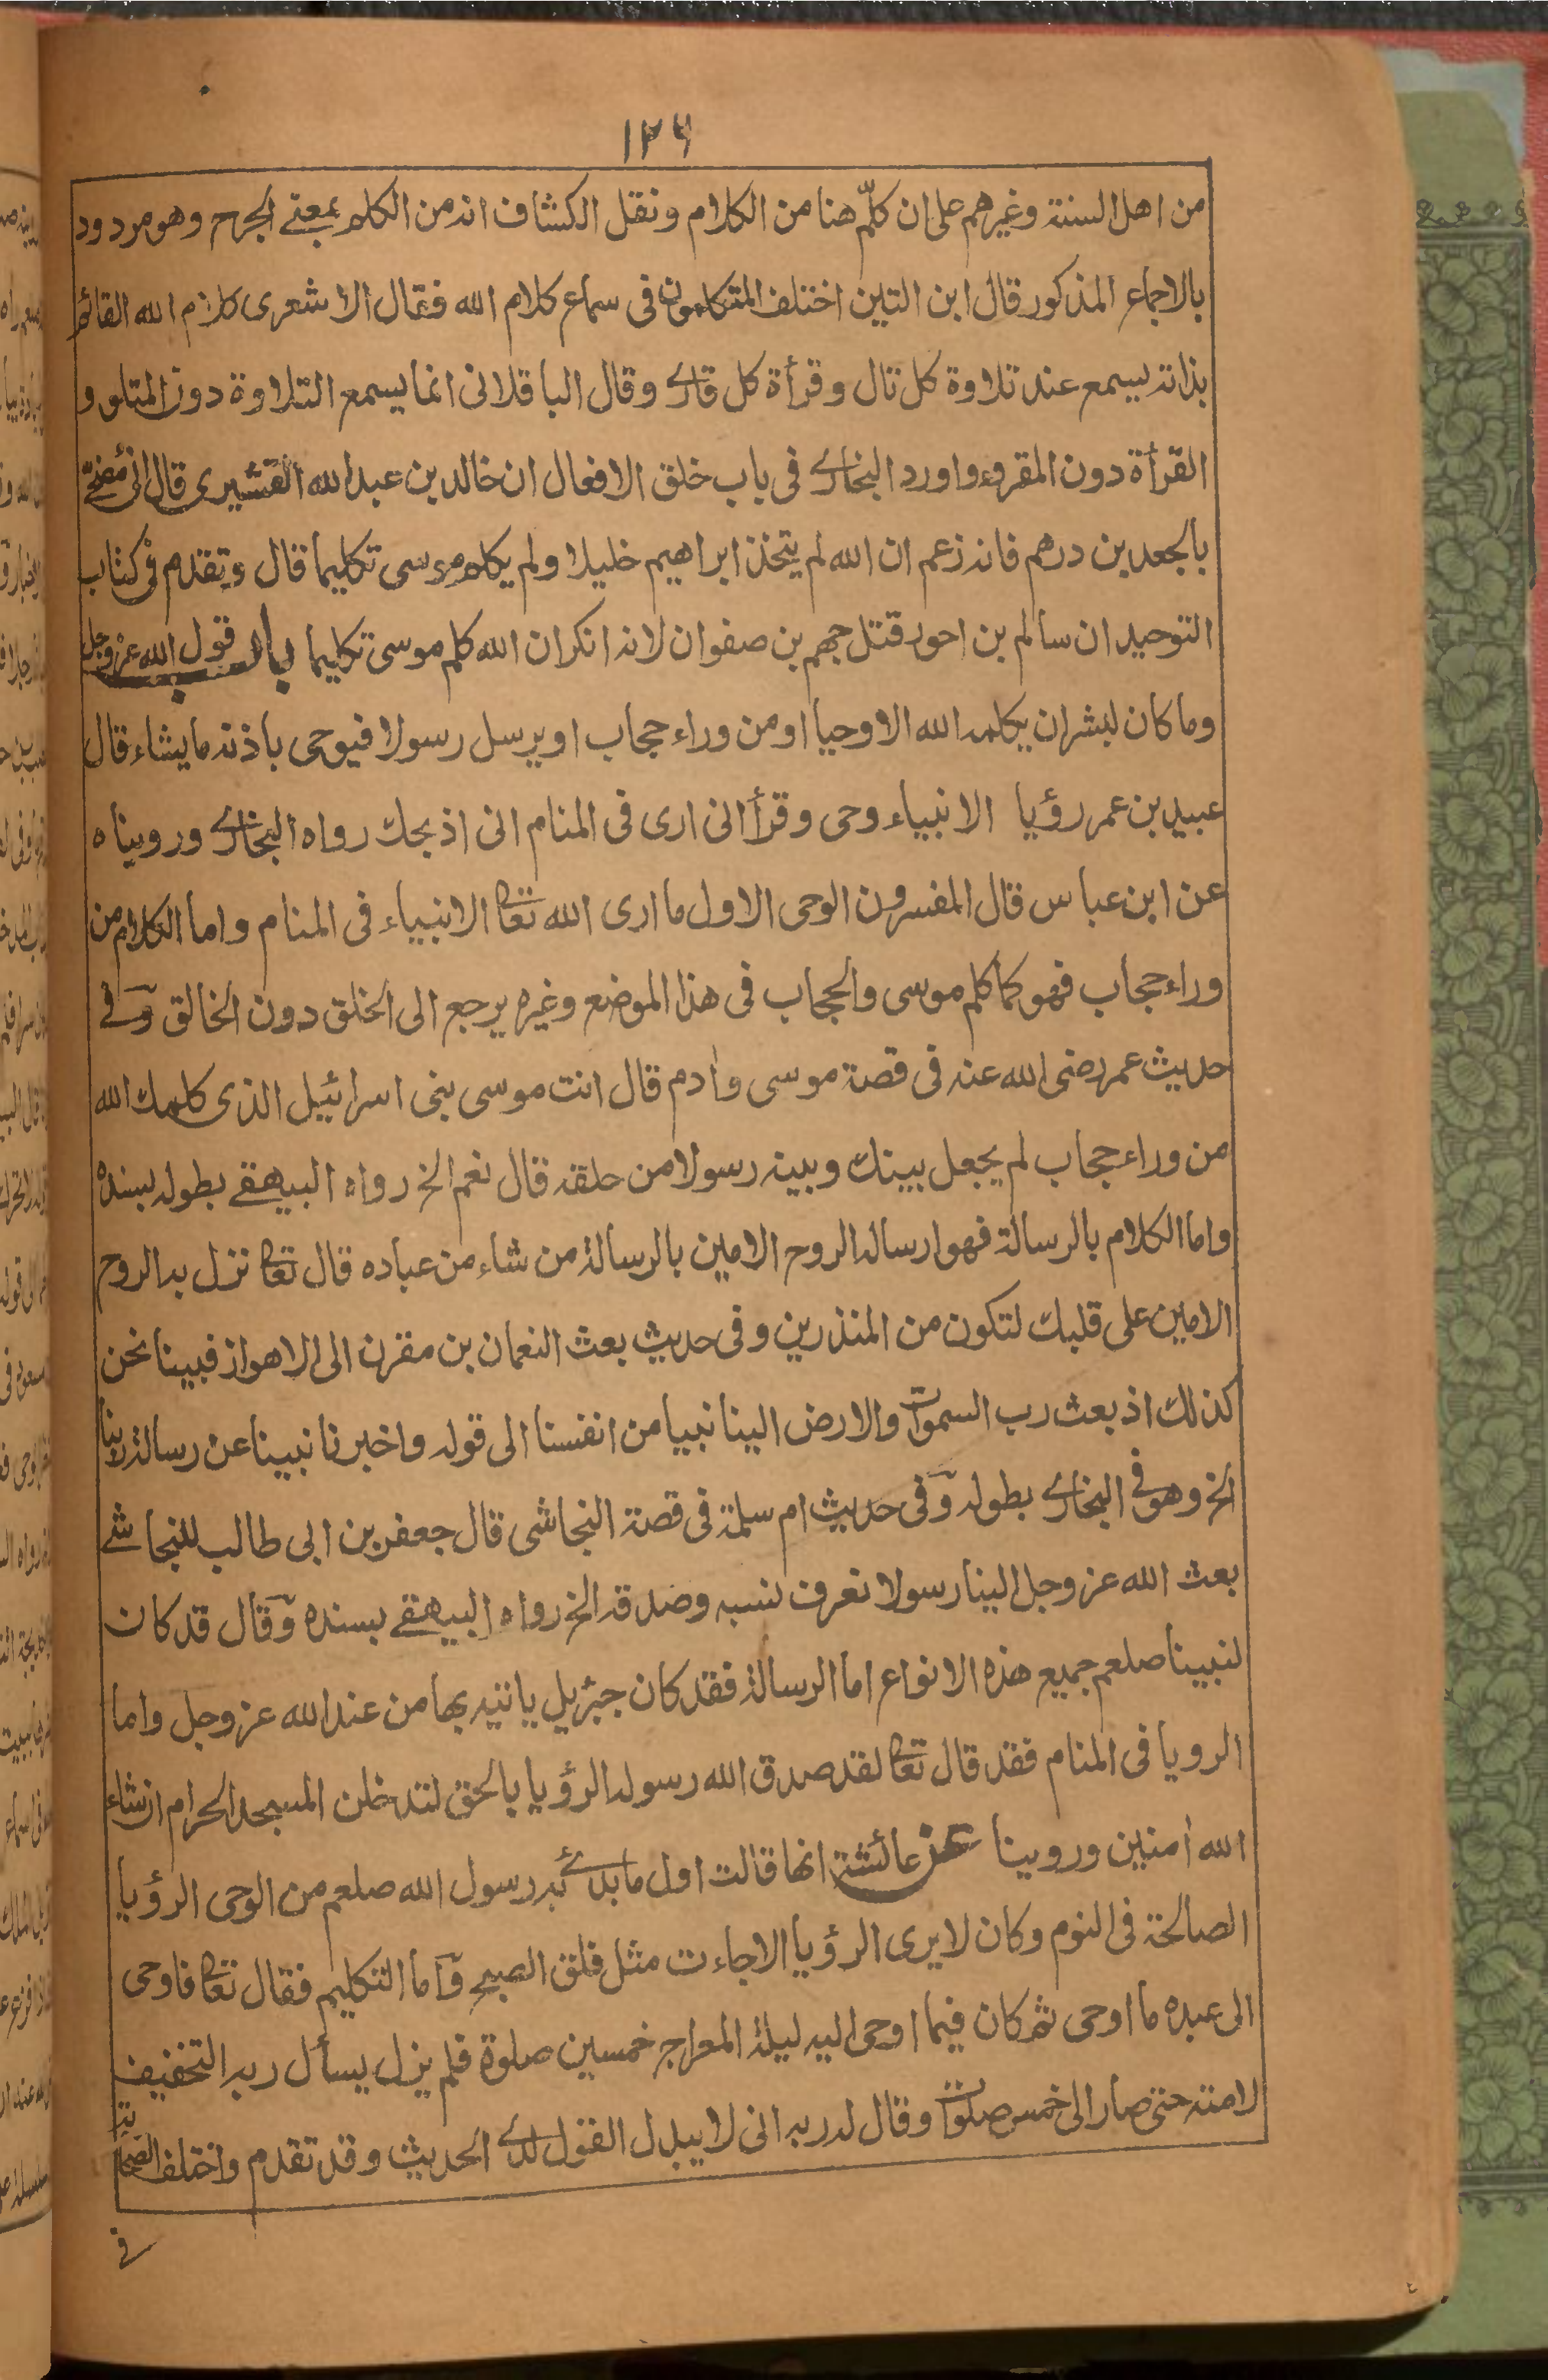 ١٢٦
من اهل السنة وغيرهم على ان كلّم هنا من الكلام ونقل الكشاف انه من الكلم بمعنے الجرح وهو مردود
بالاجماع المذكور قال ابن التين اختلف المتكلمون فى سماع كلام الله فقال الاشعرى كلام الله القائم
بذاته يسمع عند تلاوة كل تال وقرأة كل قارے وقال الباقلانى انما يسمع التلاوة دون المتلو و
القرأة دون المقروء واورد البخارے فى باب خلق الافعال ان خالد بن عبد الله القشيرى قال انى مضحّ
بالجعد بن درهم فانه زعم ان الله لم يتخذ ابراهيم خليلا ولم يكلم موسى تكليما قال وتقدم فى كتاب
التوحيد ان سالم بن احور قتل جهم بن صفوان لانه انكر ان الله كلم موسى تكليما باب قول الله عز وجل
وما كان لبشر ان يكلمه الله الا وحيا او من وراء حجاب او يرسل رسولا فيوحى باذنه ما يشاء قال
عبيد بن عمر رؤيا الانبياء وحى وقرأ انى ارى فى المنام انى اذبحك رواه البخارے وروبيناه
عن ابن عباس قال المفسرون الوحى الاول ما ارى الله تعا الانبياء فى المنام واما الكلام من
وراء حجاب فهو كما كلم موسى والحجاب فى هذا الموضع وغيره يرجع الى الخلق دون الخالق وفے
حديث عمر رضى الله عنه فى قصة موسى وادم قال انت موسى بنى اسرائيل الذى كلمك الله
من وراء حجاب لم يجعل بينك وبينه رسولا من خلقه قال نعم الخ رواه البيهقے بطوله بسنده
واما الكلام بالرسالة فهو ارساله الروح الامين بالرسالة من شاء من عباده قال تعا نزل به الروح
الامين على قلبك لتكون من المنذرين وفى حديث بعث النعمان بن مقرن الى الاهواز فبينا نحن
كذلك اذ بعث رب السموات والارض الينا نبيا من انفسنا الى قوله واخبرنا نبينا عن رسالة ربنا
الخ وهو فے البخارے بطوله وفى حديث ام سلمة فى قصة النجاشى قال جعفر بن ابى طالب للنجاشے
بعث الله عز وجل الينا رسولا نعرف نسبه وصدقه الخ رواه البيهقے بسنده وقال قد كان
لنبينا صلعم جميع هذه الانواع اما الرسالة فقد كان جبرئيل ياتيه بها من عند الله عز وجل واما
الرويا فى المنام فقد قال تعا لقد صدق الله رسوله الرؤيا بالحق لتدخلن المسجد الحرام ان شاء
الله امنين وروينا عن عائشة انها قالت اول ما بدئے به رسول الله صلعم من الوحى الرؤيا
الصالحة فى النوم وكان لا يرى الرؤيا الا جاءت مثل فلق الصبح واما التكليم فقال تعا فاوحى
الى عبده ما اوحى ثم كان فيما اوحى اليه ليلة المعراج خمسين صلوة فلم يزل يسأل ربه التخفيف
لامته حتى صار الى خمس صلوات وقال له ربه انى لا يبدل القول لدے الحديث وقد تقدم واختلف الصحابة
فے